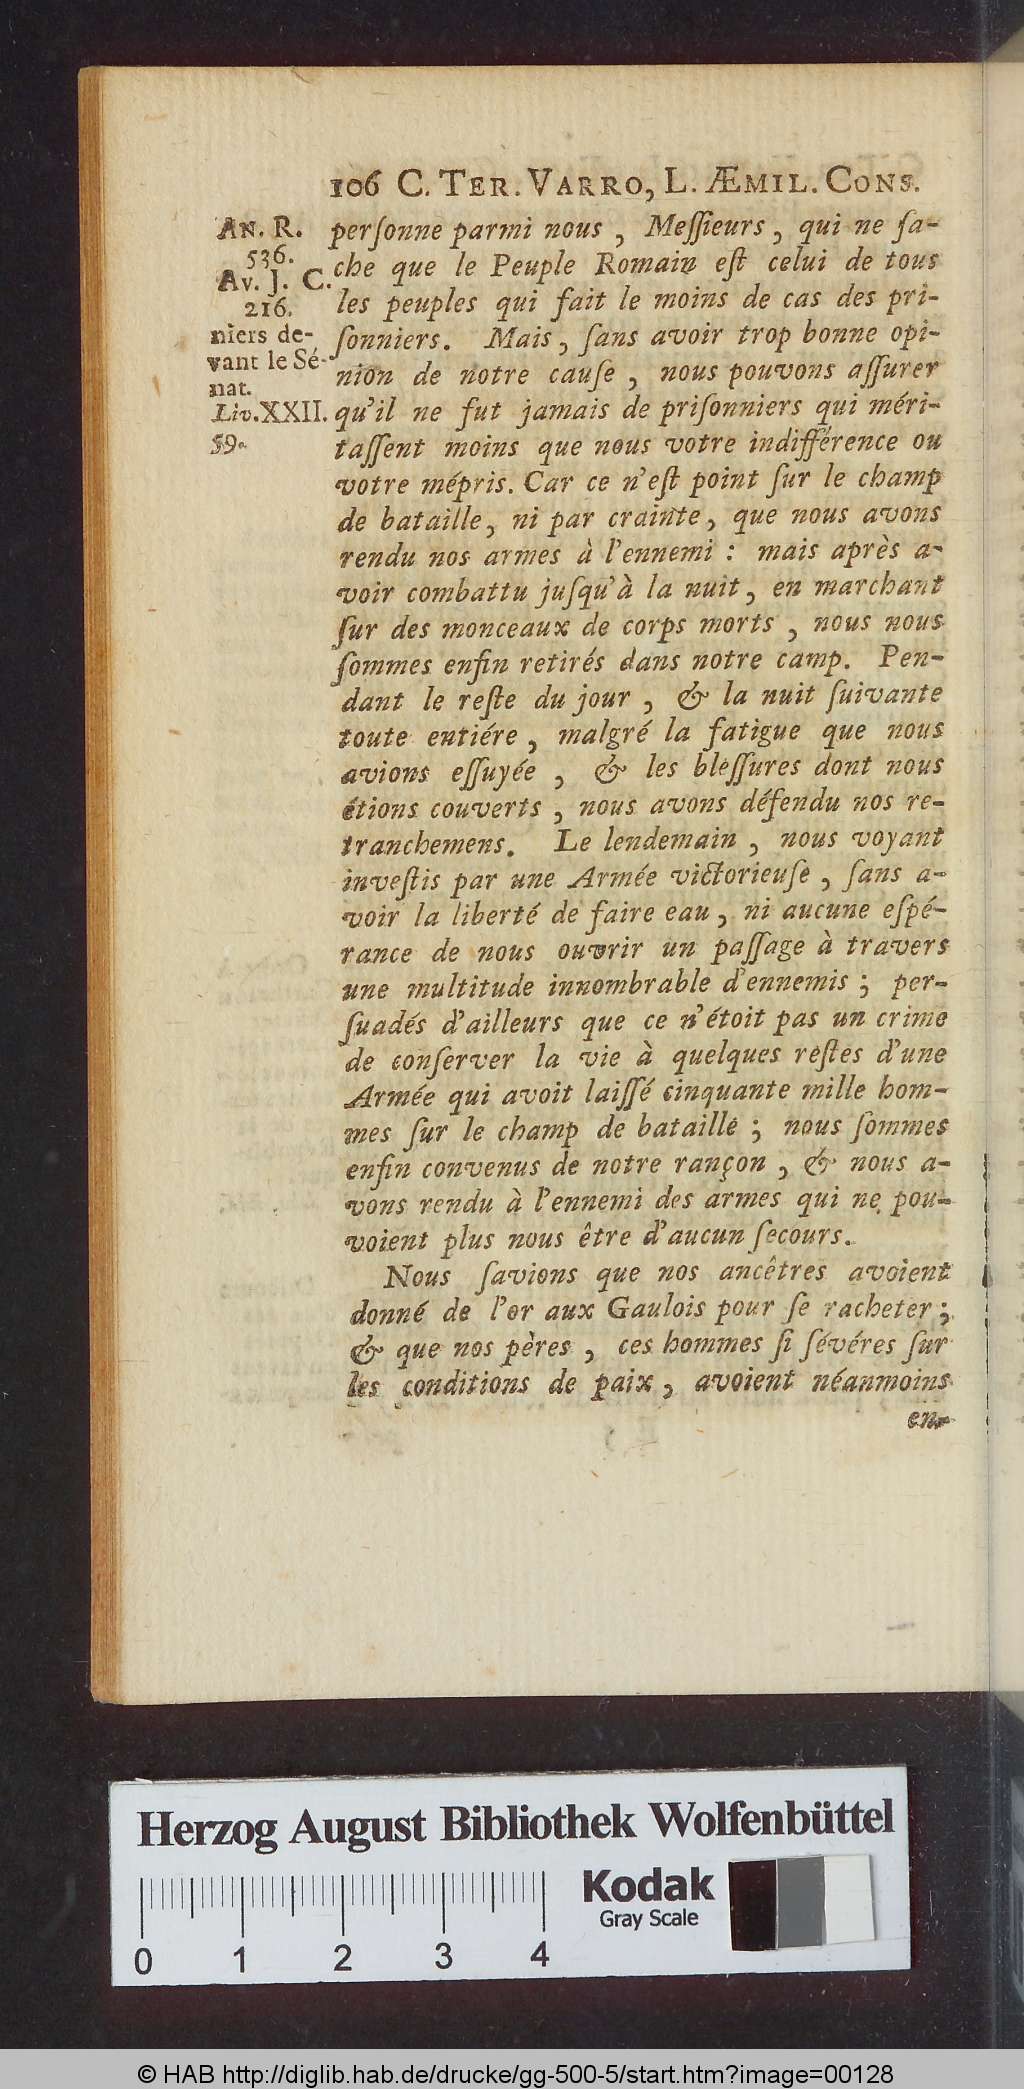 106 C. TER. VARRO, L. ÆMIL. CONS.
AN. R.
536.
AV. J. C.
216.
niers de-
vant le Sé-
nat.
Liv. XXII.
59.
perſonne parmi nous, Meſſieurs, qui ne ſa-
che que le Peuple Romain eſt celui de tous
les peuples qui fait le moins de cas des pri-
ſonniers. Mais, ſans avoir trop bonne opi-
nion de notre cauſe, nous pouvons aſſurer
qu'il ne fut jamais de priſonniers qui méri-
taſſent moins que nous votre indifférence ou
votre mépris. Car ce n'eſt point ſur le champ
de bataille, ni par crainte, que nous avons
rendu nos armes à l'ennemi : mais après a-
voir combattu juſqu'à la nuit, en marchant
ſur des monceaux de corps morts, nous nous
ſommes enfin retirés dans notre camp. Pen-
dant le reſte du jour, & la nuit ſuivante
toute entiére, malgré la fatigue que nous
avions eſſuyée, & les bleſſures dont nous
étions couverts, nous avons défendu nos re-
tranchemens. Le lendemain, nous voyant
inveſtis par une Armée victorieuſe, ſans a-
voir la liberté de faire eau, ni aucune eſpé-
rance de nous ouvrir un paſſage à travers
une multitude innombrable d'ennemis ; per-
ſuadés d'ailleurs que ce n'étoit pas un crime
de conſerver la vie à quelques reſtes d'une
Armée qui avoit laiſſé cinquante mille hom-
mes ſur le champ de bataille ; nous ſommes
enfin convenus de notre rançon, & nous a-
vons rendu à l'ennemi des armes qui ne pou-
voient plus nous être d'aucun ſecours.
Nous ſavions que nos ancêtres avoient
donné de l'or aux Gaulois pour ſe racheter ;
& que nos pères, ces hommes ſi ſévéres ſur
les conditions de paix, avoient néanmoins
en-
Herzog August Bibliothek Wolfenbüttel
Kodak
Gray Scale
0 1 2 3 4
© HAB http://diglib.hab.de/drucke/gg-500-5/start.htm?image=00128